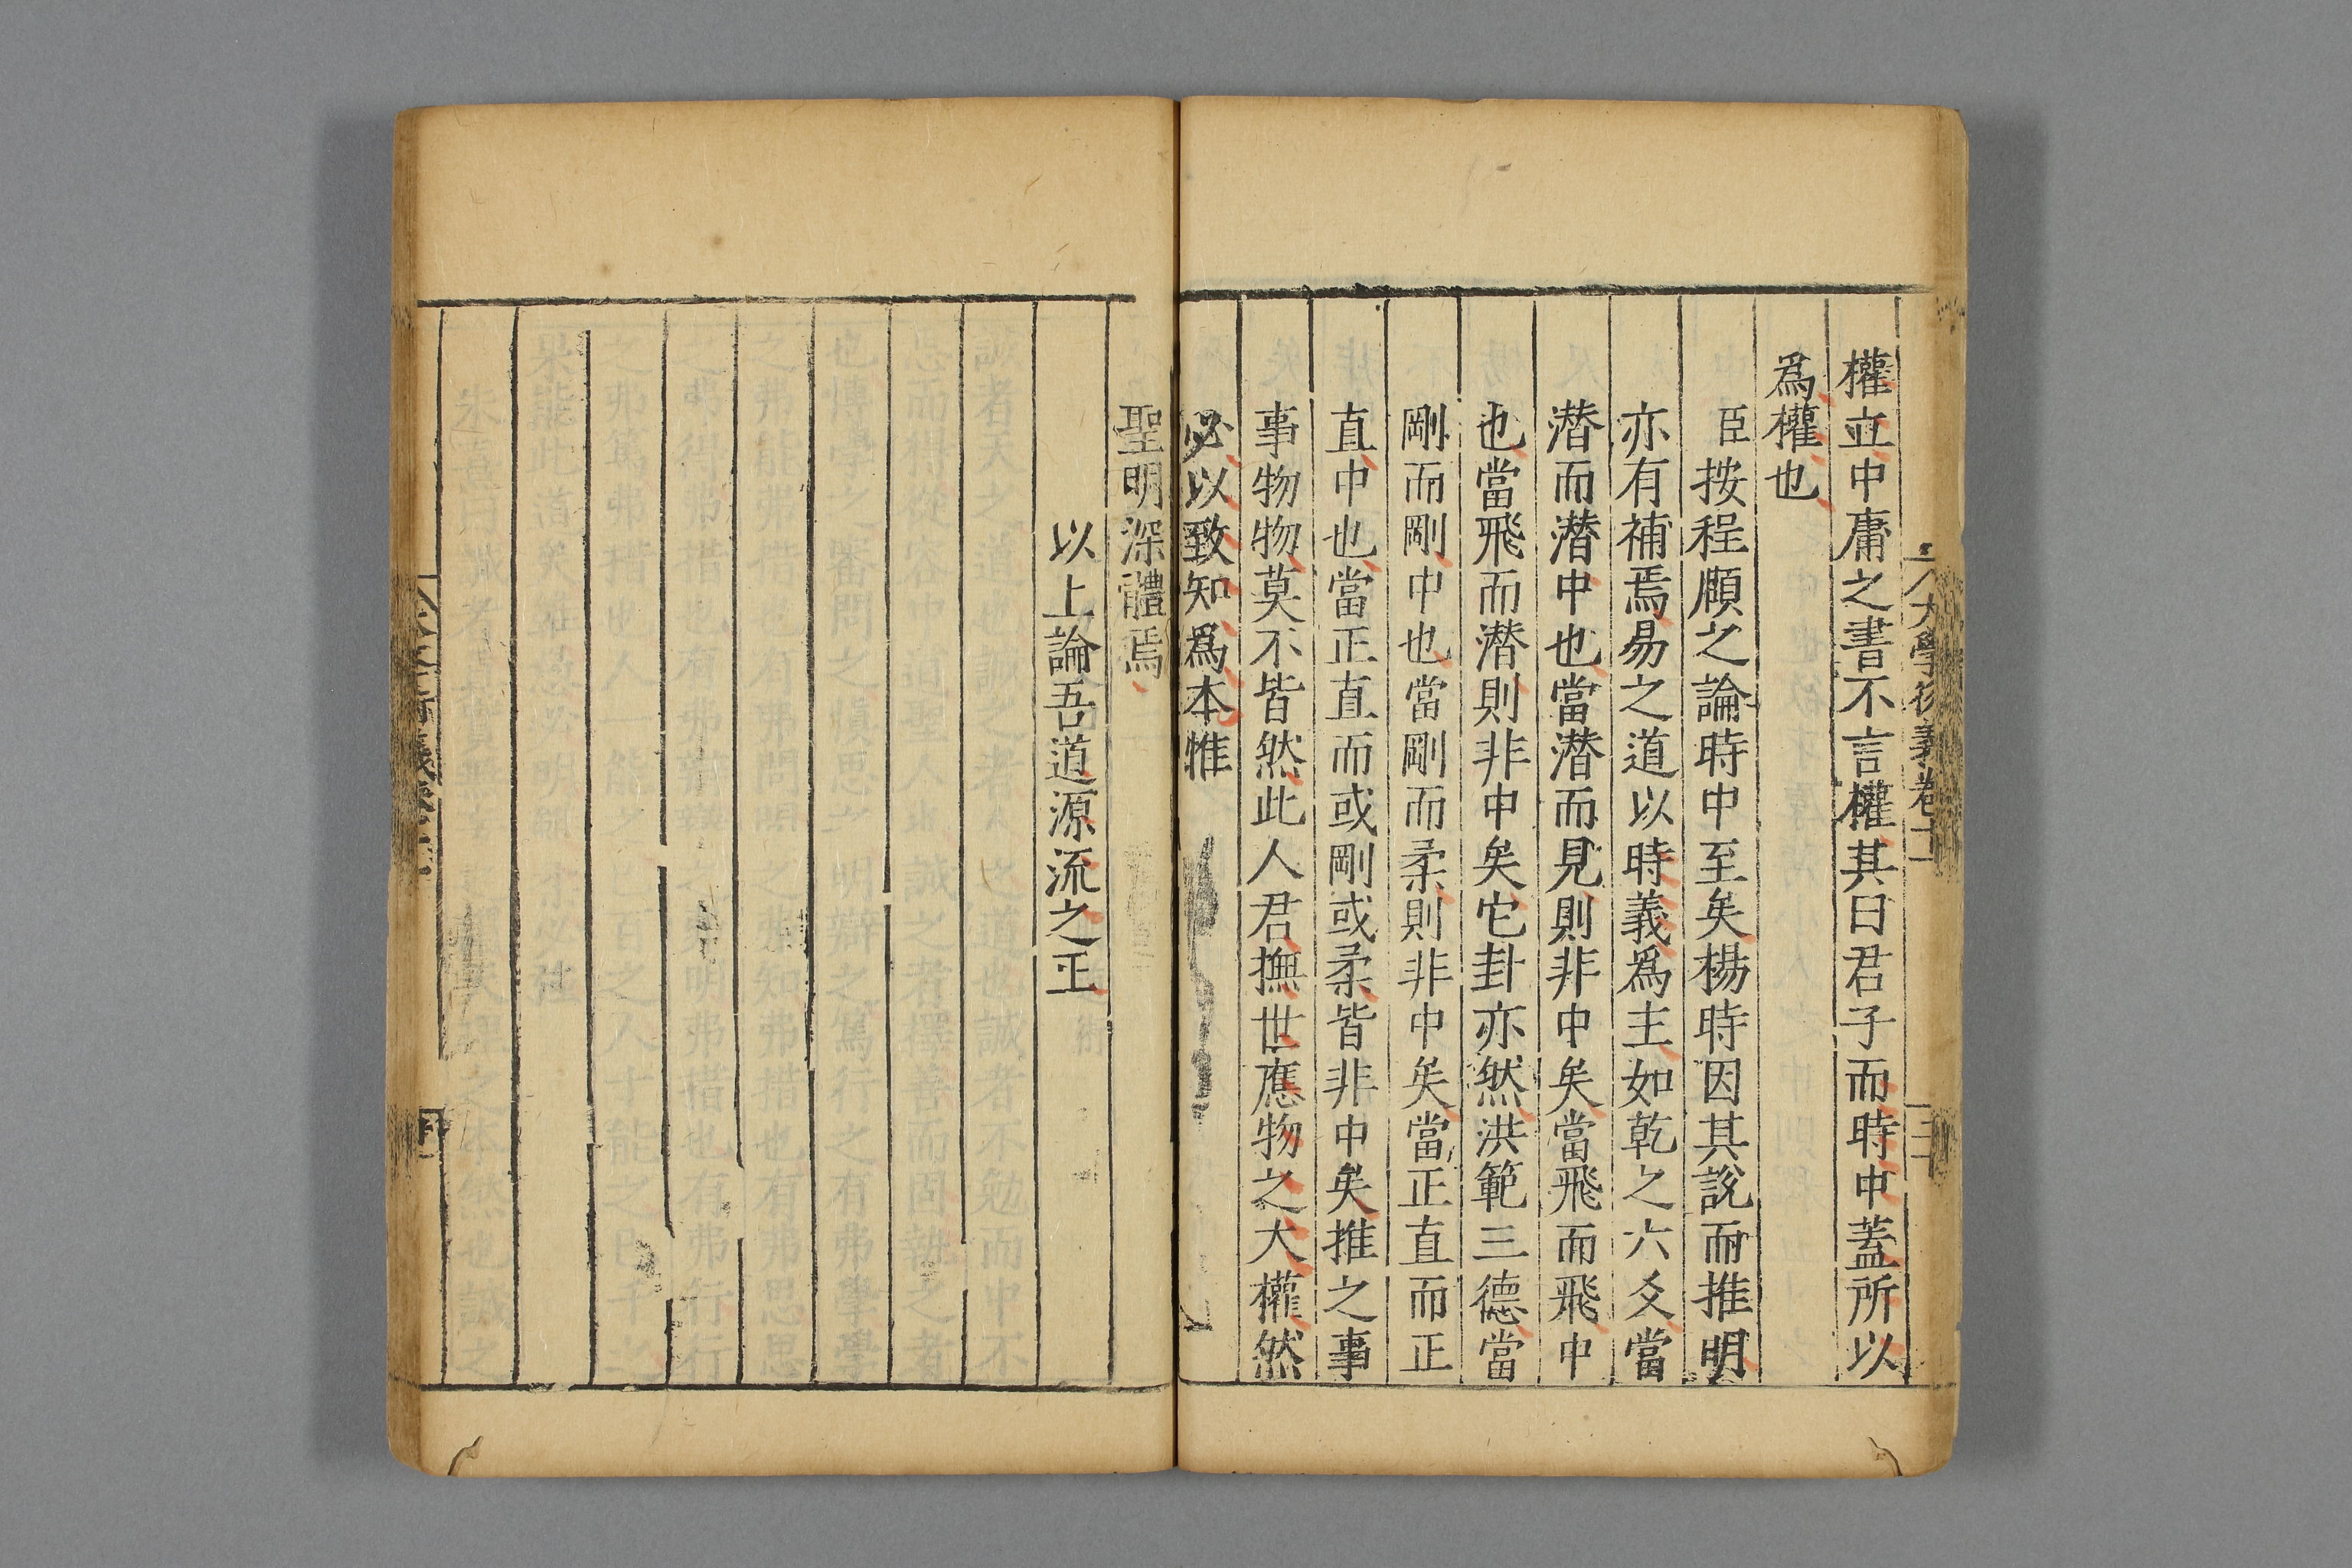 大學衍義卷十一
二十
權立中庸之書不言權其曰君子而時中蓋所以
爲權也
臣按程頤之論時中至矣楊時因其說而推明
亦有補焉易之道以時義爲主如乾之六爻當
潜而潜中也當潜而見則非中矣當飛而飛中
也當飛而潜則非中矣它卦亦然洪範三德當
剛而剛中也當剛而柔則非中矣當正直而正
直中也當正直而或剛或柔皆非中矣推之事
事物物莫不皆然此人君撫世應物之大權然
必以致知爲本惟
聖明深體焉
以上論吾道源流之正